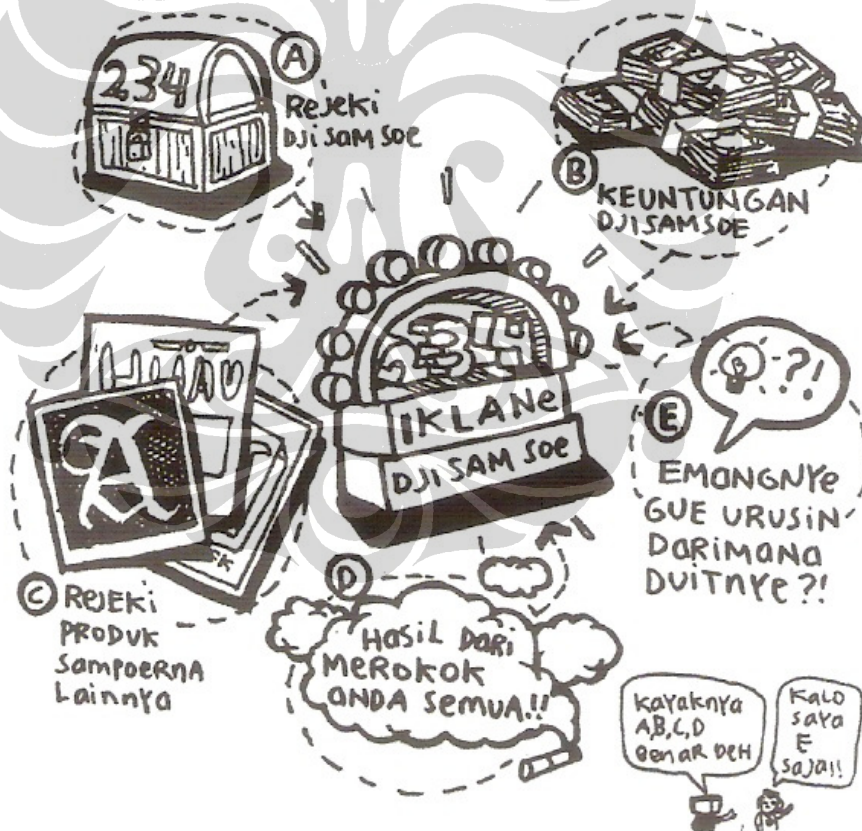 234
A
Rejeki
DJi SAM SOE
B
KEUNTUNGAN
DJISAMSOE
IKLANe
DJI SAM SOE
A
C
REJEKi
PRODUK
SampoeRNA
Lainnya
D
HASiL DARi
MEROKOK
ANDA SEMUA.!!
?!
E
EMANGNYe
GUE URUSiN
DARIMANA
DUiTNYe?!
KAYAKNYA
A,B,C,D
BENAR DEH
KALO
SAYA
E
SAJA!!